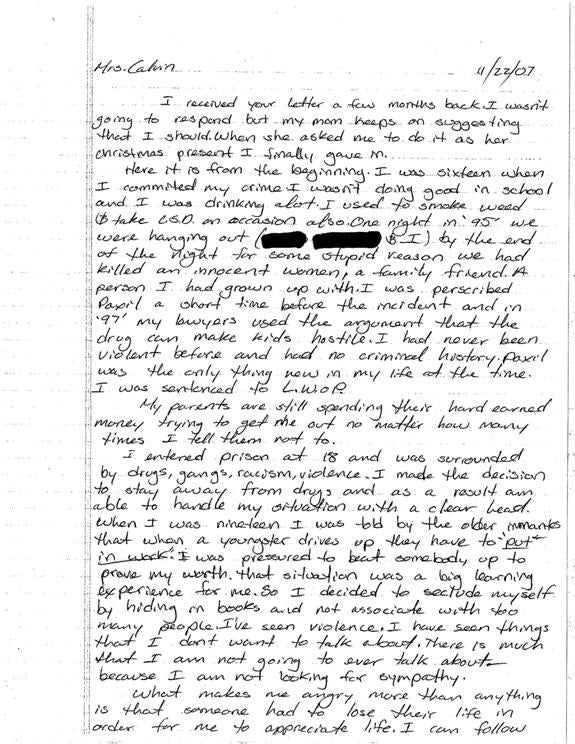 Mrs. Calvin 11/22/07
I received your letter a few months back. I wasn't
going to respond but my mom keeps on suggesting
that I should. When she asked me to do it as her
christmas present I finally gave in.
Here it is from the beginning. I was sixteen when
I committed my crime. I wasn't doing good in school
and I was drinking alot. I used to smoke weed
& take L.S.D. on occasion also. One night in '95' we
were hanging out ( & I) by the end
of the night for some stupid reason we had
killed an innocent women, a family friend. A
person I had grown up with. I was perscribed
Paxil a short time before the incident and in
'97' my lawyers used the argument that the
drug can make kids hostile. I had never been
violent before and had no criminal history. Paxil
was the only thing new in my life at the time.
I was sentenced to L.W.O.P.
My parents are still spending their hard earned
money trying to get me out no matter how many
times I tell them not to.
I entered prison at 18 and was surrounded
by drugs, gangs, racism, violence. I made the decision
to stay away from drugs and as a result am
able to handle my situation with a clear head.
When I was nineteen I was told by the older inmantes
that when a youngster drives up they have to "put
in work". I was pressured to beat somebody up to
prove my worth. That situation was a big learning
experience for me. So I decided to seclude myself
by hiding in books and not associate with too
many people. I've seen violence. I have seen things
that I dont want to talk about. There is much
that I am not going to ever talk about
because I am not looking for sympathy.
What makes me angry more than anything
is that someone had to lose their life in
order for me to appreciate life. I can follow